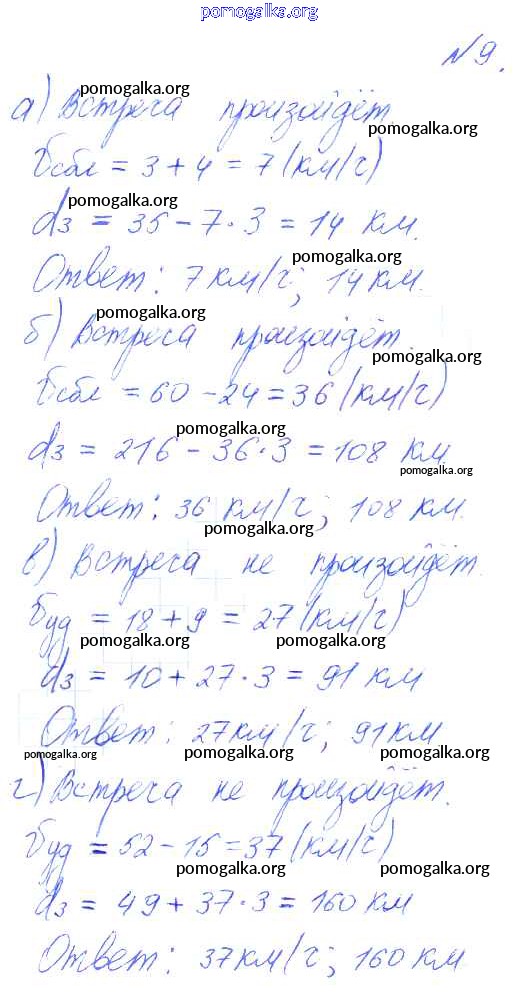 pomogalka.org
№9.
pomogalka.org
а) Встреча произойдёт.
pomogalka.org
Vсбл = 3 + 4 = 7 (км/ч)
pomogalka.org
d₃ = 35 - 7 · 3 = 14 км.
pomogalka.org
Ответ: 7 км/ч; 14 км.
pomogalka.org
б) Встреча произойдёт.
pomogalka.org
Vсбл = 60 - 24 = 36 (км/ч)
pomogalka.org
d₃ = 216 - 36 · 3 = 108 км
pomogalka.org
Ответ: 36 км/ч; 108 км.
pomogalka.org
в) Встреча не произойдёт.
Vуд = 18 + 9 = 27 (км/ч)
pomogalka.org pomogalka.org
d₃ = 10 + 27 · 3 = 91 км
Ответ: 27 км/ч; 91 км
pomogalka.org pomogalka.org pomogalka.org
г) Встреча не произойдёт.
Vуд = 52 - 15 = 37 (км/ч)
pomogalka.org pomogalka.org
d₃ = 49 + 37 · 3 = 160 км
pomogalka.org pomogalka.org
Ответ: 37 км/ч; 160 км